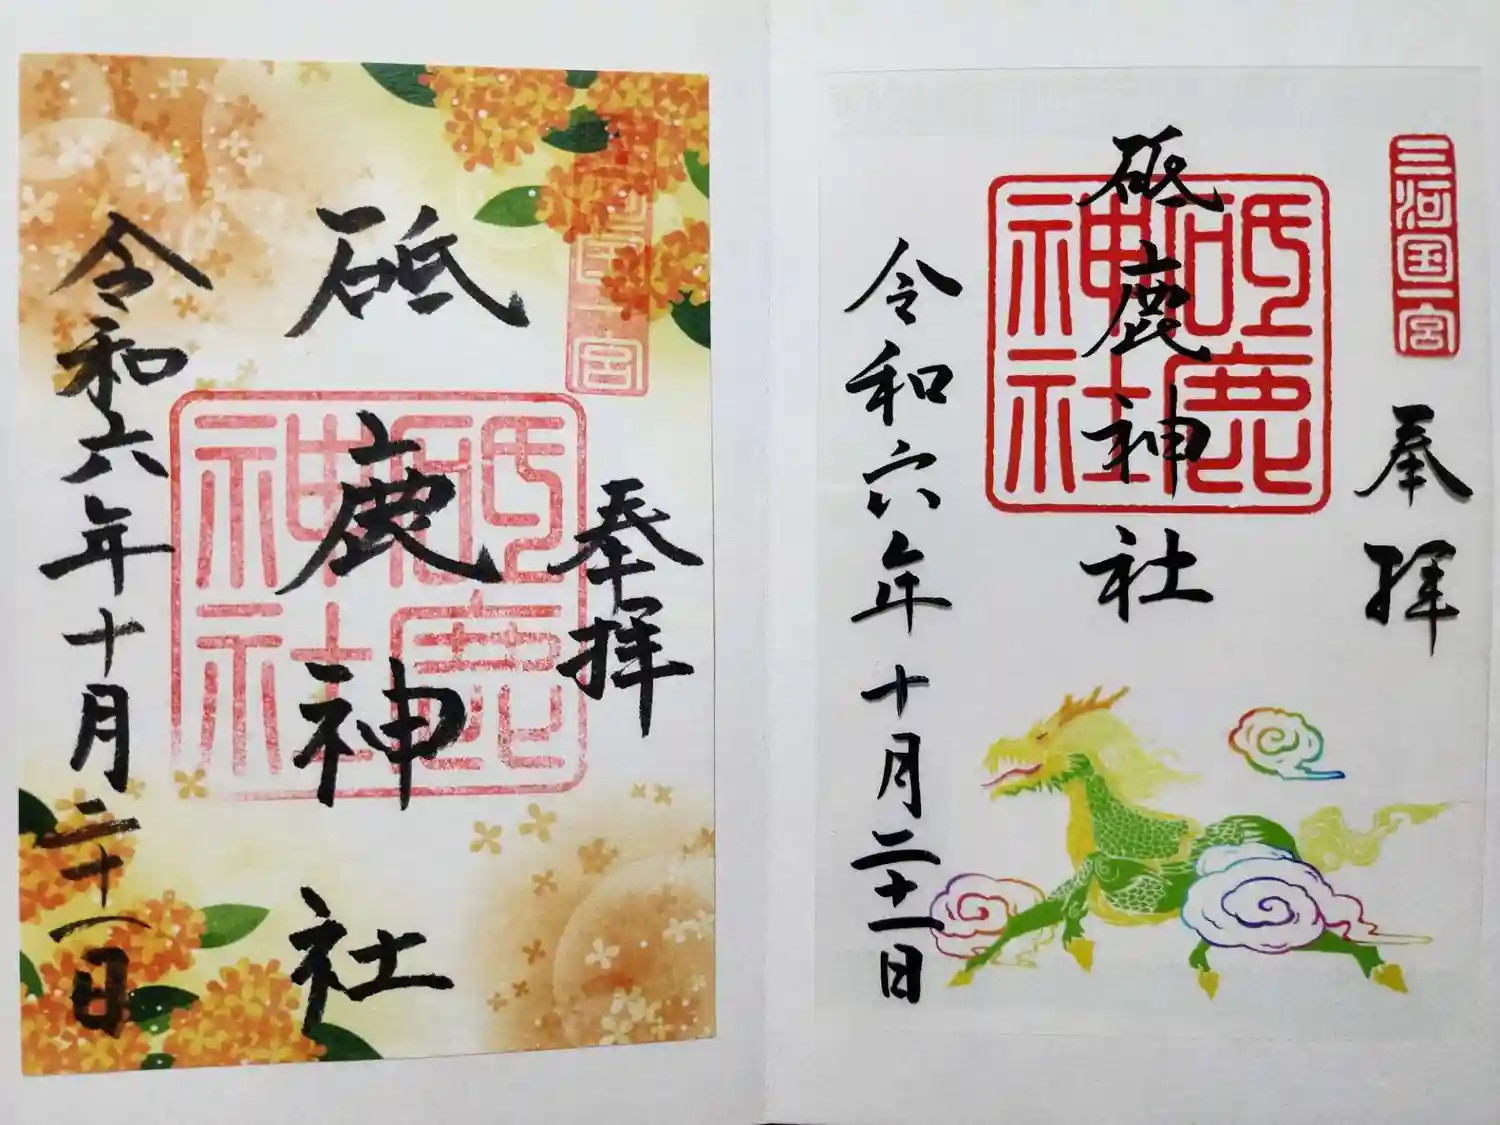 三河国一宮
奉拝
砥鹿神社
砥鹿神社
令和六年十月二十一日
三河国一宮
奉拝
砥鹿神社
砥鹿神社
令和六年十月二十一日